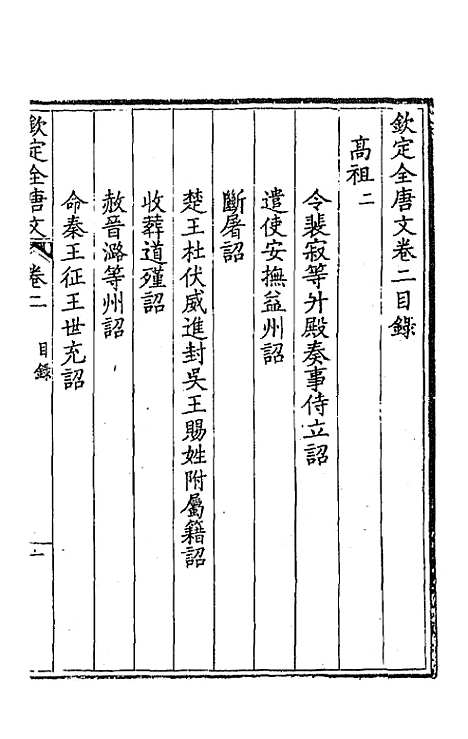 欽定全唐文卷二目錄
高祖二
令裴寂等升殿奏事侍立詔
遣使安撫益州詔
斷屠詔
楚王杜伏威進封吳王賜姓附屬籍詔
收葬道殣詔
赦晉潞等州詔
命秦王征王世充詔
欽定全唐文
卷二
目錄
一